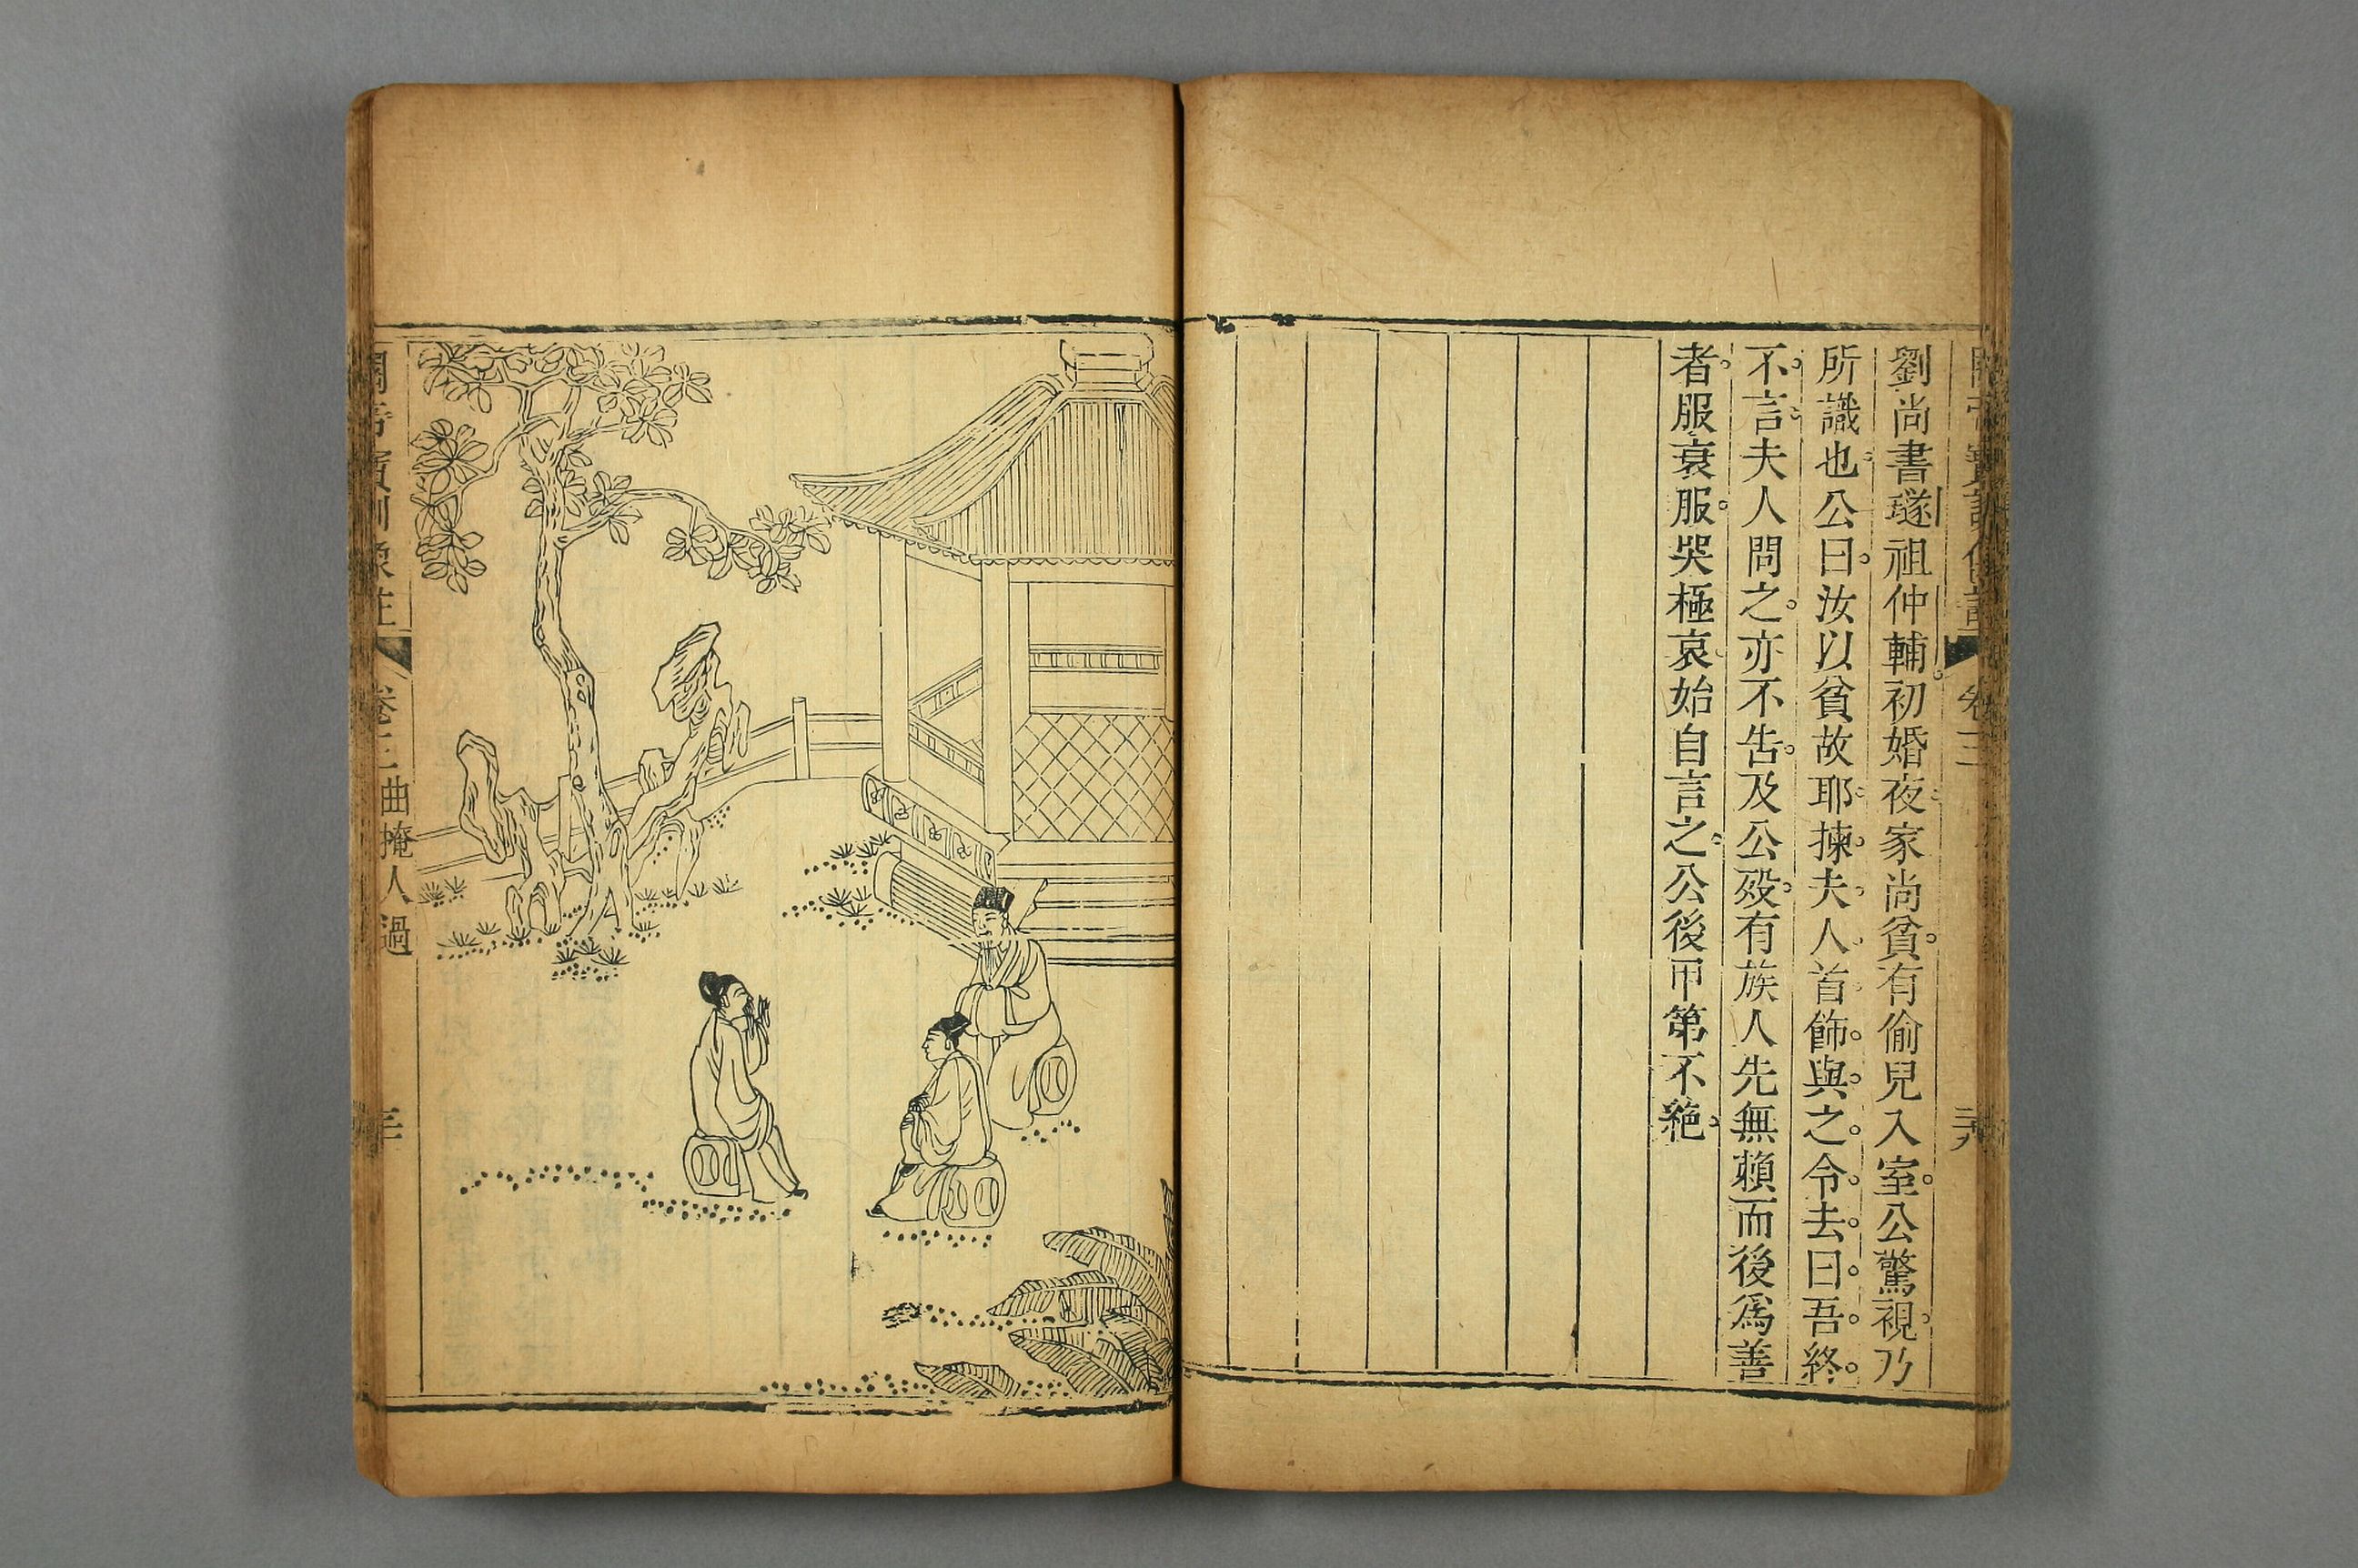 劉尚書璲祖仲輔初婚夜家尚貧有偷兒入室公驚視乃
所識也公曰汝以貧故耶揀夫人首飾與之令去曰吾終
不言夫人問之亦不告及公歿有族人先無賴而後為善
者服衰服哭極哀始自言之公後甲第不絶
卷三
曲掩人過